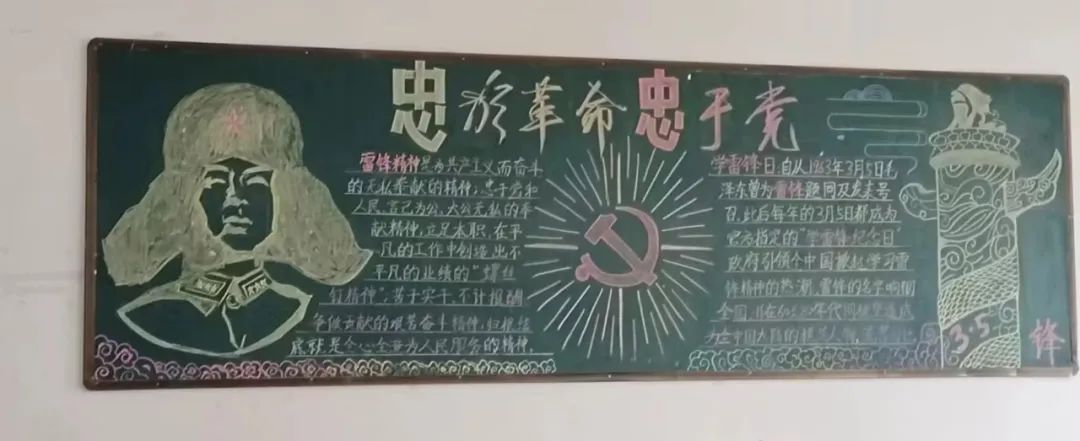 忠於革命忠于党
雷锋精神是为共产主义而奋斗
的无私奉献的精神；忠于党和
人民、舍己为公、大公无私的奉
献精神；立足本职、在平
凡的工作中创造出不
平凡的业绩的“螺丝
钉精神”；苦干实干、不计报酬、
争做贡献的艰苦奋斗精神，归根结
底就是全心全意为人民服务的精神。
学雷锋日：自从1963年3月5日毛
泽东曾为雷锋题词及发表号
召，此后每年的3月5日都成为
官方指定的“学雷锋纪念日”
政府引领个中国掀起学习雷
锋精神的热潮，雷锋的名字响彻
全国，且在
年代
成
为
中国大陆的
3·5
锋